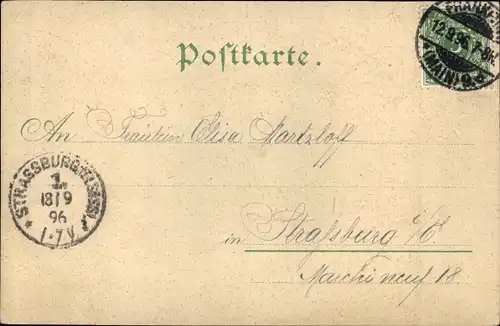 FRANKFURT
12.9.96.7-8N.
(MAIN) 9.
Postkarte.
An Fräulein Elisa Martzloff
STRASSBURG (ELS)
1.
18/9
96
1-7V
in Straßburg i/E.
Marché neuf 18.